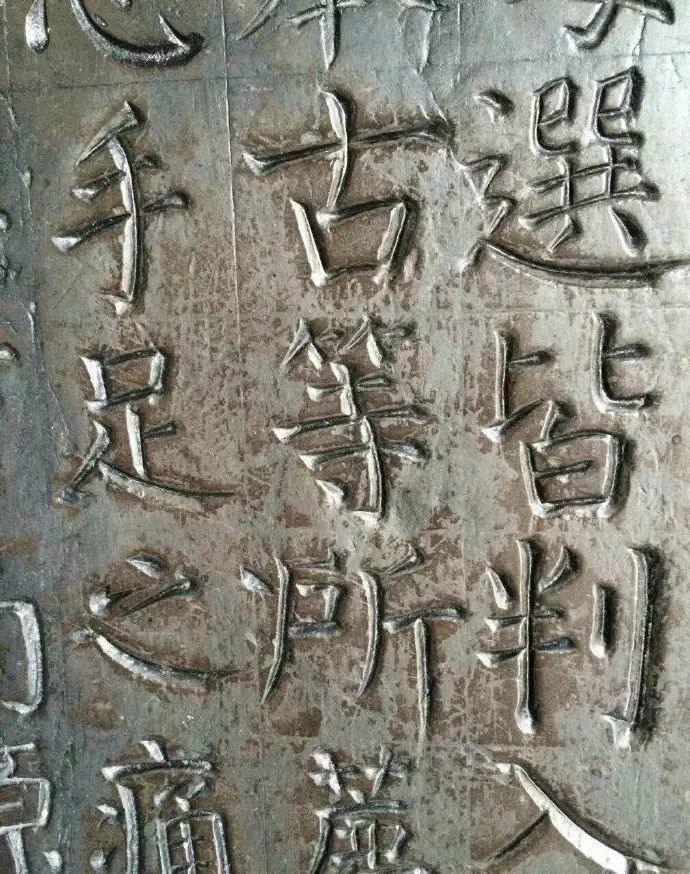 選皆判入
古等所薦
手足之痛